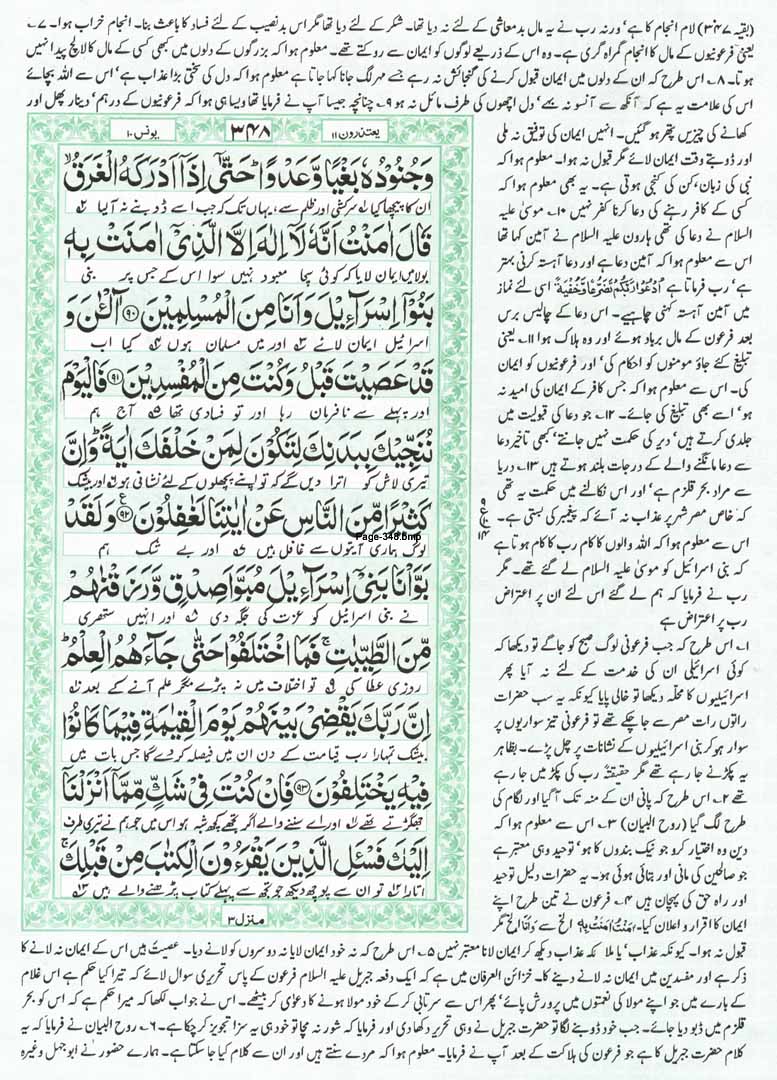 (بقیہ ۳۴۷) لام انجام کا ہے‘ ورنہ رب نے یہ مال بدمعاشی کے لئے نہ دیا تھا۔ شکر کے لئے دیا تھا مگر اس بدنصیب کے لئے فساد کا باعث بنا۔ انجام خراب ہوا۔ ۷ے
یعنی فرعونیوں کے مال کا انجام گمراہ گری ہے۔ وہ اس کے ذریعے لوگوں کو ایمان سے روکتے تھے۔ معلوم ہوا کہ بزرگوں کے دلوں میں بھی کسی کے مال کا لالچ پیدا نہیں
ہوتا۔ ۸ے اس طرح کہ ان کے دلوں میں ایمان قبول کرنے کی گنجائش نہ رہے جسے مہر لگ جانا کہا جاتا ہے معلوم ہوا کہ دل کی سختی بڑا عذاب ہے‘ اس سے اللہ بچائے
اس کی علامت یہ ہے کہ آنکھ سے آنسو نہ بہے‘ دل اچھوں کی طرف مائل نہ ہو ۹ے چنانچہ جیسا آپ نے فرمایا تھا ویسا ہی ہوا کہ فرعونیوں کے درہم‘ دینار پھل اور
کھانے کی چیزیں پتھر ہو گئیں۔ انہیں ایمان کی توفیق نہ ملی
اور ڈوبتے وقت ایمان لائے مگر قبول نہ ہوا۔ معلوم ہوا کہ
نبی کی زبان‘ کن کی کنجی ہوتی ہے۔ یہ بھی معلوم ہوا کہ
کسی کے کافر رہنے کی دعا کرنا کفر نہیں ۱۰ے موسیٰ علیہ
السلام نے دعا کی تھی ہارون علیہ السلام نے آمین کہا تھا
اس سے معلوم ہوا کہ آمین دعا ہے اور دعا آہستہ کرنی بہتر
ہے‘ رب فرماتا ہے اُدْعُوْا رَبَّكُمْ تَضَرُّعًا وَّخُفْيَةً اسی لئے نماز
میں آمین آہستہ کہنی چاہیے۔ اس دعا کے چالیس برس
بعد فرعون کے مال برباد ہوئے اور وہ ہلاک ہوا ۱۱ے یعنی
تبلیغ کئے جاؤ مومنوں کو احکام کی‘ اور فرعونیوں کو ایمان
کی۔ اس سے معلوم ہوا کہ جس کافر کے ایمان کی امید نہ
ہو‘ اسے بھی تبلیغ کی جائے۔ ۱۲ے جو دعا کی قبولیت میں
جلدی کرتے ہیں‘ دیر کی حکمت نہیں جانتے‘ کبھی تاخیر دعا
سے دعا مانگنے والے کے درجات بلند ہوتے ہیں ۱۳ے دریا
سے مراد بحر قلزم ہے‘ اور اس نکالنے میں حکمت یہ تھی
کہ خاص مصر شہر پر عذاب نہ آئے کہ پیغمبر کی بستی ہے۔
اس سے معلوم ہوا کہ اللہ والوں کا کام رب کا کام ہوتا ہے
کہ بنی اسرائیل کو موسیٰ علیہ السلام لے گئے تھے۔ مگر
رب نے فرمایا کہ ہم لے گئے اس لئے ان پر اعتراض
رب پر اعتراض ہے
۱ے اس طرح کہ جب فرعونی لوگ صبح کو جاگے تو دیکھا کہ
کوئی اسرائیلی ان کی خدمت کے لئے نہ آیا پھر
اسرائیلیوں کا محلہ دیکھا تو خالی پایا کیونکہ یہ سب حضرات
راتوں رات مصر سے جا چکے تھے تو فرعونی تیز سواریوں پر
سوار ہو کر بنی اسرائیلیوں کے نشانات پر چل پڑے۔ بظاہر
یہ پکڑنے جا رہے تھے مگر حقیقتہً رب کی پکڑ میں جا رہے
تھے ۲ے اس طرح کہ پانی ان کے منہ تک آگیا اور لگام کی
طرح لگ گیا (روح البیان) ۳ے اس سے معلوم ہوا کہ
دین وہ اختیار کرو جو نیک بندوں کا ہو‘ توحید وہی معتبر ہے
جو صالحین کی مانی اور بتائی ہوئی ہو۔ یہ حضرات دلیل توحید
اور راہ حق کی پہچان ہیں ۴ے فرعون نے تین طرح اپنے
ایمان کا اقرار و اعلان کیا۔ اٰمَنْتُ اٰمَنَتْ بِهٖ الخ سے وَاَنَا الخ مگر
یعتذرون ۱۱
۳۴۸
یونس ۱۰
وَجُنُوْدُهٗ بَغْيًا وَّعَدْوًا ؕ حَتّٰۤى اِذَاۤ اَدْرَكَهُ الْغَرَقُ ۙ
ان کا پیچھا کیا ۱ سرکشی اور ظلم سے‘ یہاں تک کہ جب اسے ڈوبنے نے آلیا ۲
قَالَ اٰمَنْتُ اَنَّهٗ لَاۤ اِلٰهَ اِلَّا الَّذِيْۤ اٰمَنَتْ بِهٖ
بولا میں ایمان لایا کہ کوئی سچا معبود نہیں سوا اس کے جس پر بنی
بَنُوْۤا اِسْرَآءِيْلَ وَاَنَا مِنَ الْمُسْلِمِيْنَ ۹۰ آٰلْـٰٔنَ وَ
اسرائیل ایمان لائے ۳ اور میں مسلمان ہوں ۴ کیا اب
قَدْ عَصَيْتَ قَبْلُ وَكُنْتَ مِنَ الْمُفْسِدِيْنَ ۹۱ فَالْيَوْمَ
اور پہلے سے نافرمان رہا اور تو فسادی تھا ۵ آج ہم
نُنَجِّيْكَ بِبَدَنِكَ لِتَكُوْنَ لِمَنْ خَلْفَكَ اٰيَةً ؕ وَاِنَّ
تیری لاش کو اترا دیں گے کہ تو اپنے پچھلوں کے لئے نشانی ہو ۶ اور بیشک
كَثِيْرًا مِّنَ النَّاسِ عَنْ اٰيٰتِنَا لَغٰفِلُوْنَ ۹۲ وَلَقَدْ
Page-348.bmp
لوگ ہماری آیتوں سے غافل ہیں ۷ اور بے شک ہم
بَوَّاْنَا بَنِيْۤ اِسْرَآءِيْلَ مُبَوَّاَ صِدْقٍ وَّرَزَقْنٰهُمْ
نے بنی اسرائیل کو عزت کی جگہ دی ۸ اور انہیں ستھری
مِّنَ الطَّيِّبٰتِ ۚ فَمَا اخْتَلَفُوْا حَتّٰى جَآءَهُمُ الْعِلْمُ ؕ
روزی عطا کی ۹ تو اختلاف میں نہ پڑے مگر علم آنے کے بعد ۱۰
اِنَّ رَبَّكَ يَقْضِيْ بَيْنَهُمْ يَوْمَ الْقِيٰمَةِ فِيْمَا كَانُوْا
بیشک تمہارا رب قیامت کے دن ان میں فیصلہ کر دے گا جس بات میں
فِيْهِ يَخْتَلِفُوْنَ ۹۳ فَاِنْ كُنْتَ فِيْ شَكٍّ مِّمَّاۤ اَنْزَلْنَاۤ
جھگڑتے تھے ۱۱ اور اے سننے والے اگر تجھے کچھ شبہ ہو اس میں جو ہم نے تیری طرف
اِلَيْكَ فَسْـَٔلِ الَّذِيْنَ يَقْرَءُوْنَ الْكِتٰبَ مِنْ قَبْلِكَ ۚ
اتارا ۱۲ تو ان سے پوچھ دیکھ جو تجھ سے پہلے کتاب پڑھنے والے ہیں ۱۳
منزل ۳
قبول نہ ہوا۔ کیونکہ عذاب‘ یا ملائکہ عذاب دیکھ کر ایمان لانا معتبر نہیں ۵ے اس طرح کہ نہ خود ایمان لایا نہ دوسروں کو لانے دیا۔ عصیتَ میں اس کے ایمان نہ لانے کا
ذکر ہے اور مفسدین میں ایمان نہ لانے دینے کا۔ خزائن العرفان میں ہے کہ ایک دفعہ جبریل علیہ السلام فرعون کے پاس تحریری سوال لائے کہ تیرا کیا حکم ہے اس غلام
کے بارے میں جو اپنے مولا کی نعمتوں میں پرورش پائے‘ پھر اس سے سرتابی کر کے خود مولا ہونے کا دعوٰی کر بیٹھے۔ اس نے جواب لکھا کہ میرا حکم ہے کہ اس کو بحر
قلزم میں ڈبو دیا جائے۔ جب خود ڈوبنے لگا تو حضرت جبریل نے وہی تحریر دکھا دی اور فرمایا کہ شور نہ مچا تو خود ہی یہ سزا تجویز کر چکا ہے۔ ۶ے روح البیان نے فرمایا کہ یہ
کلام حضرت جبریل کا ہے جو فرعون کی ہلاکت کے بعد آپ نے فرمایا۔ معلوم ہوا کہ مردے سنتے ہیں اور ان سے کلام کیا جا سکتا ہے۔ ہمارے حضور نے ابو جہل وغیرہ